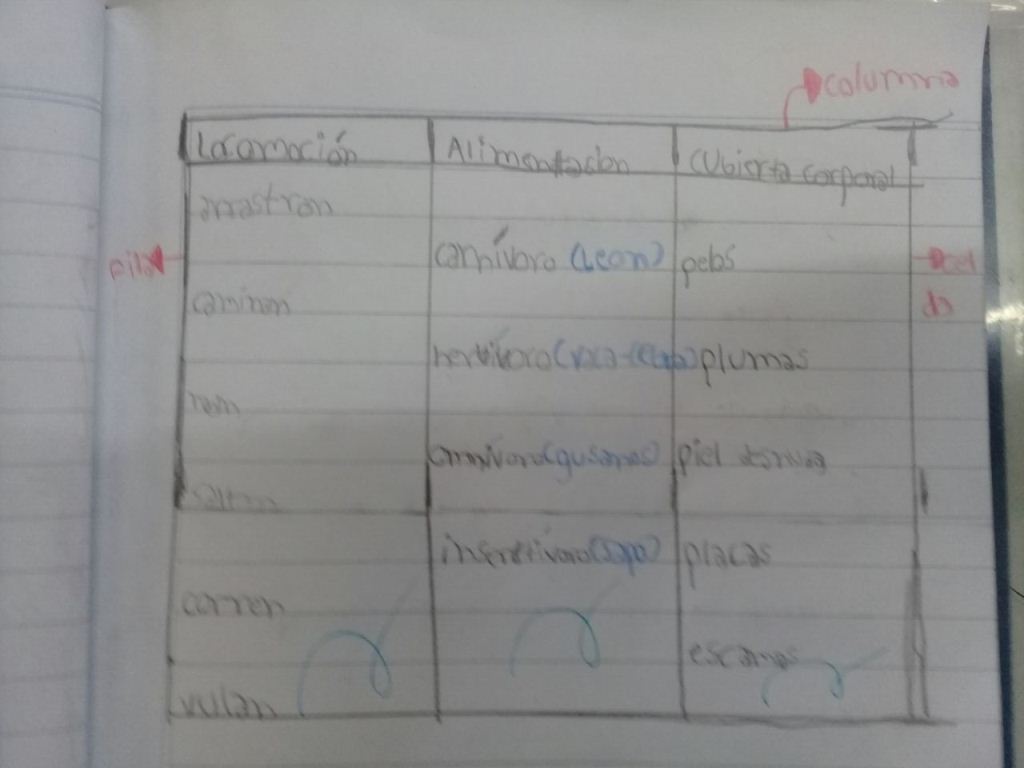 columna
Locomoción Alimentacion Cubierta corporal
arrastran
carnívoro (Leon) pelos
pila
caminan
herbívoro ( plumas
omnívoro (gusanos) piel desnuda
insectívoro (sapo) placas
corren
escamas
vulan